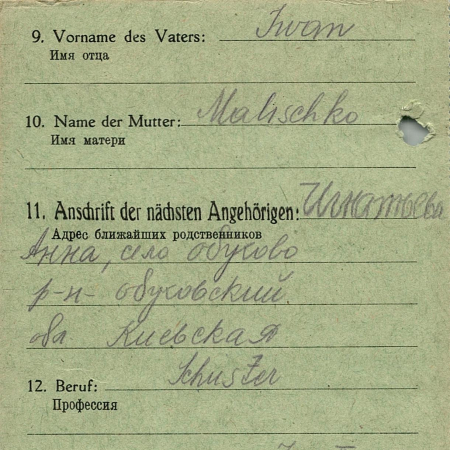 9. Vorname des Vaters: Iwan
Имя отца
10. Name der Mutter: Malischko
Имя матери
11. Anschrift der nächsten Angehörigen: Игнатьева
Адрес ближайших родственников
Анна, село обуково
р-н- обуховский
обл Киевская
12. Beruf: Schuster
Профессия